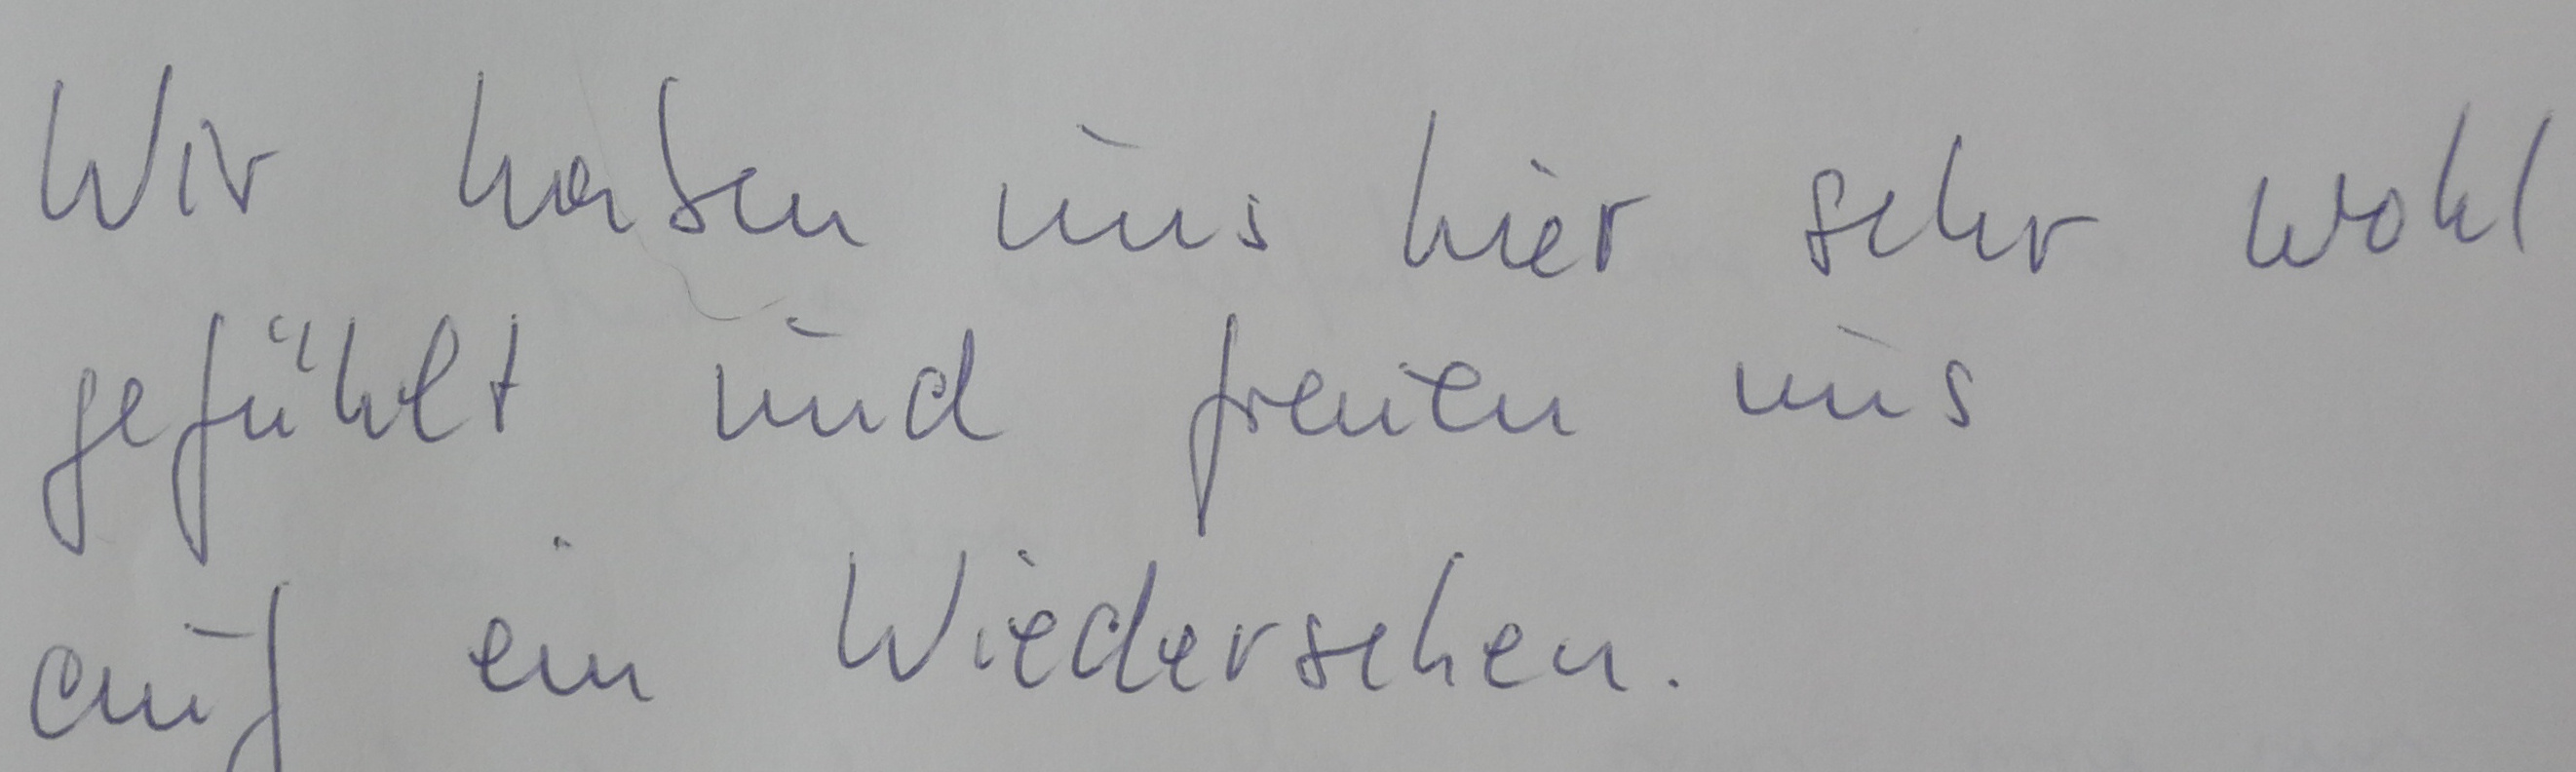 Wir haben uns hier sehr wohl
gefühlt und freuen uns
auf ein Wiedersehen.